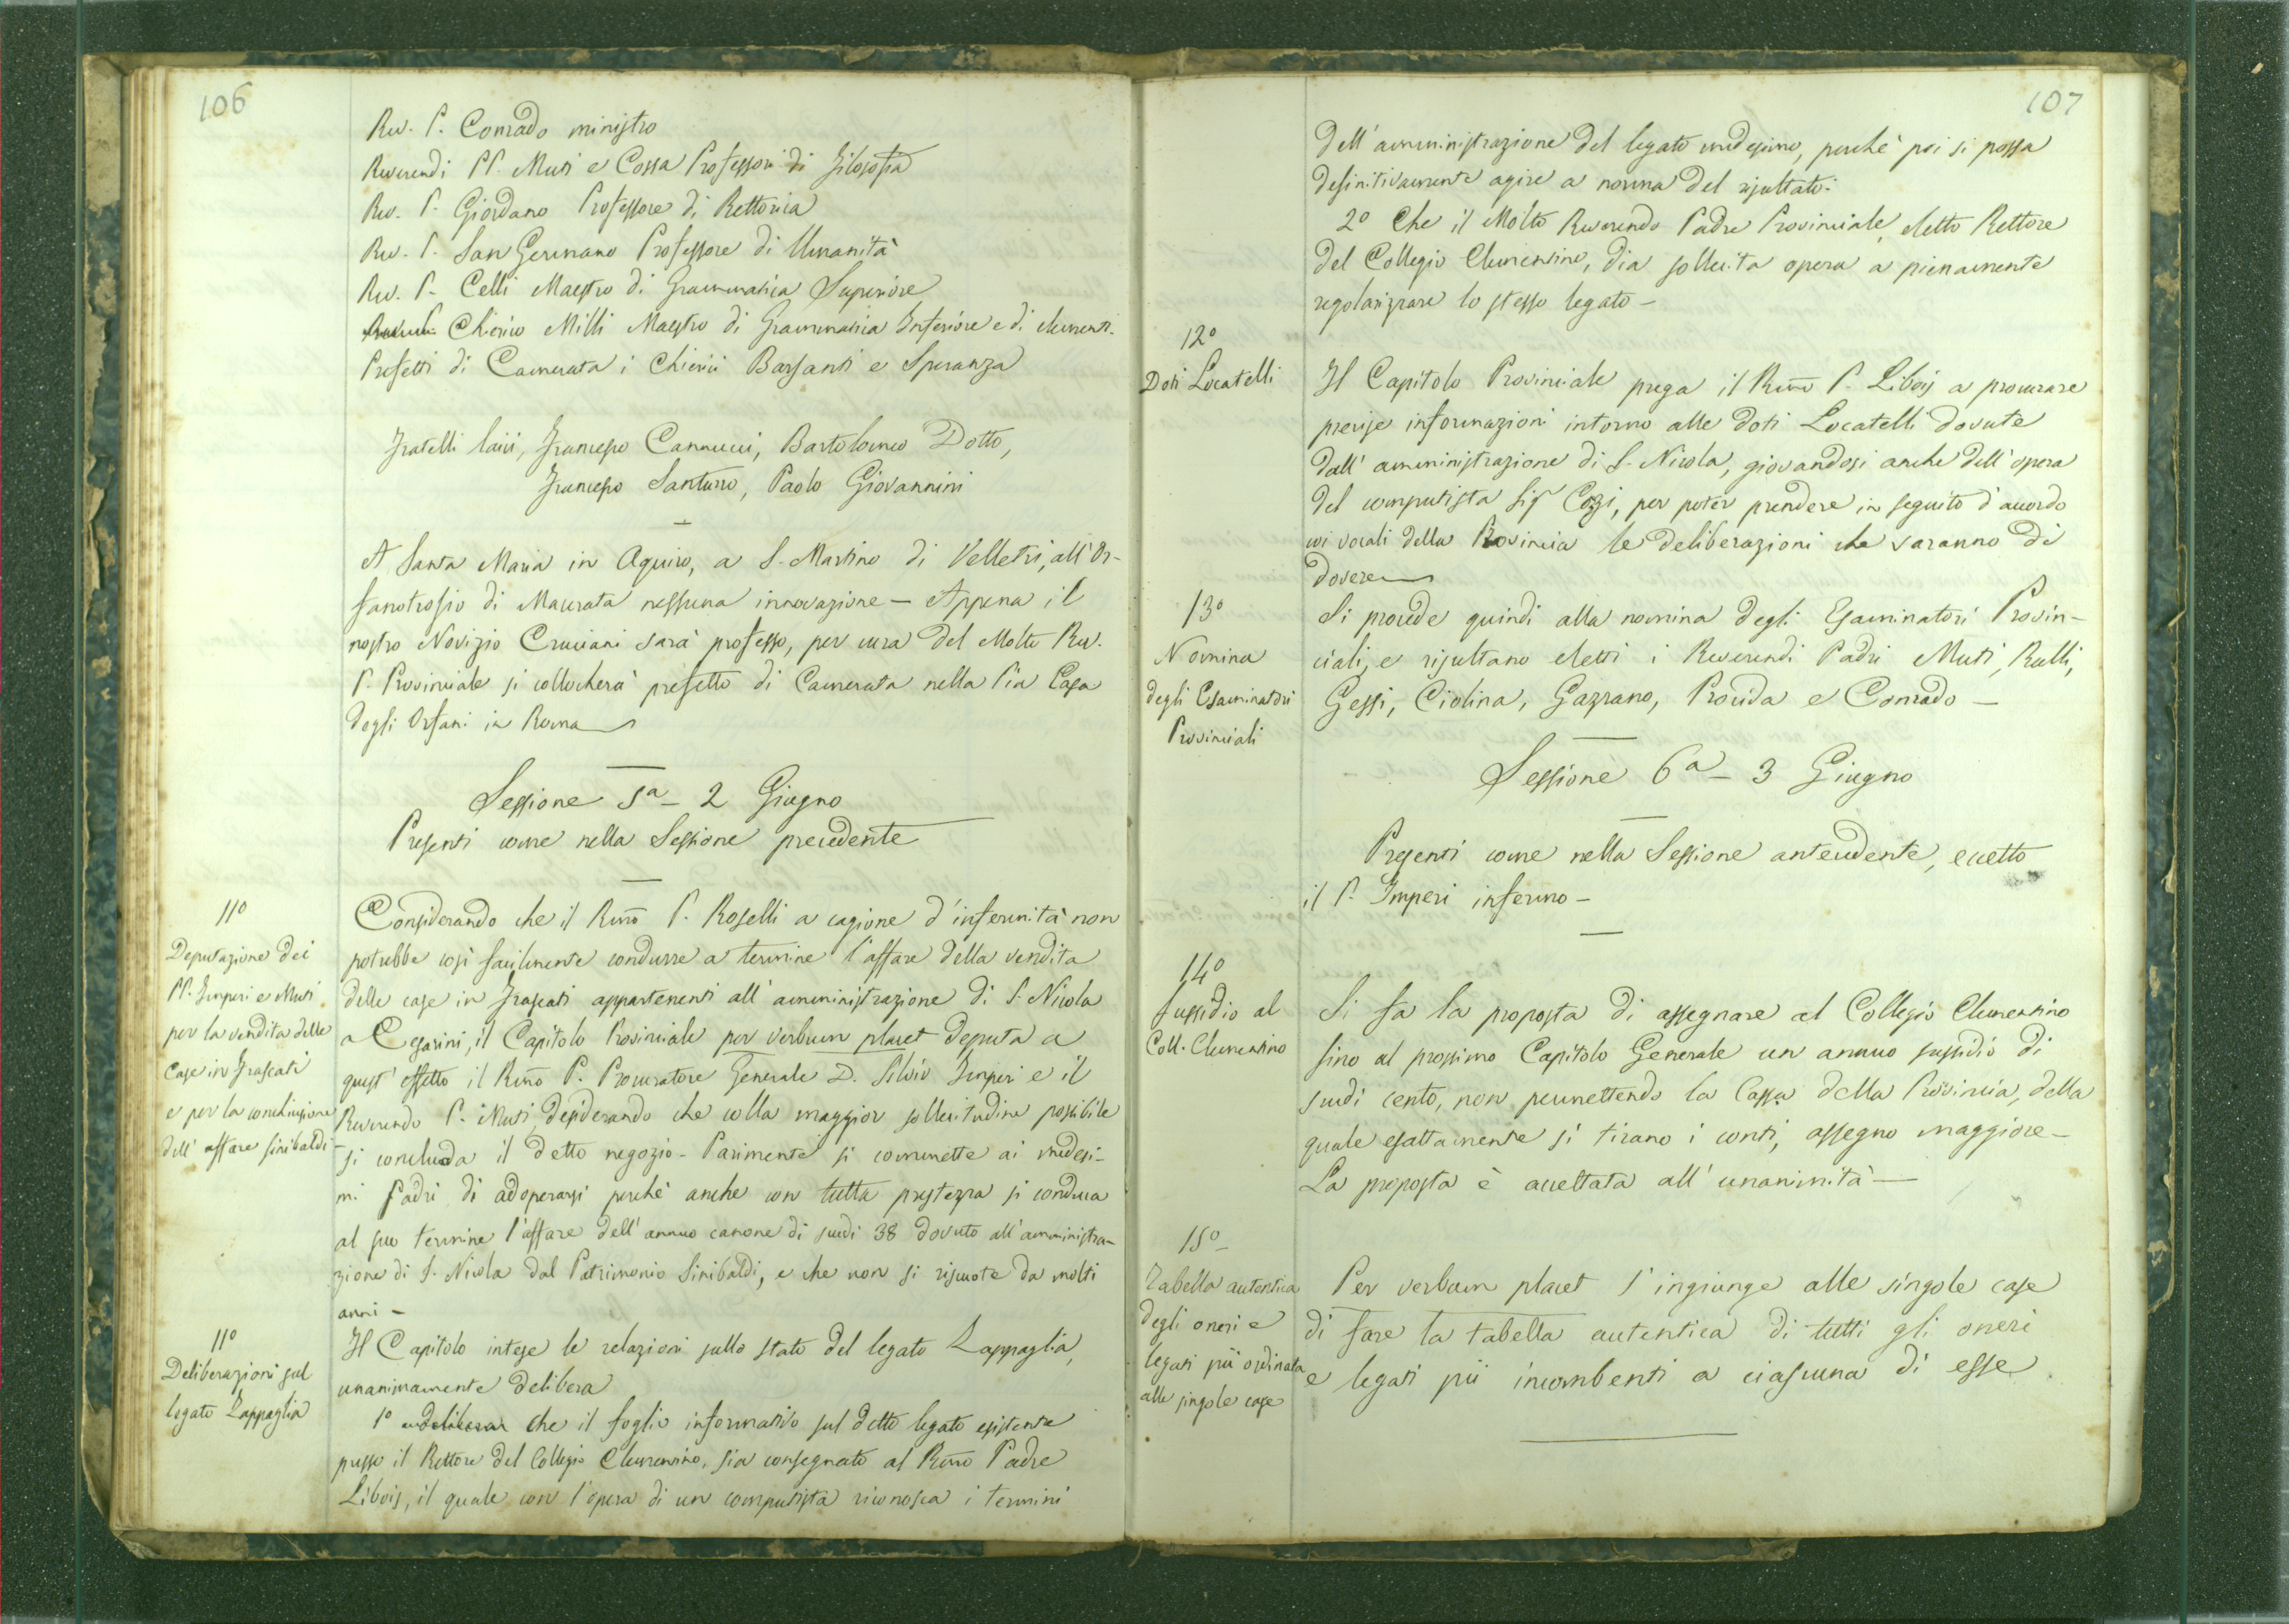 106
Rev. P. Conrado ministro
Reverendi PP. Muti e Cossa Professori di Filosofia
Rev. P. Giordano Professore di Rettorica
Rev. P. San Germano Professore di Umanità
Rev. P. Celli Maestro di Grammatica Superiore
Chierico Milli Maestro di Grammatica Inferiore e di elementi.
Prefetti di Camerata i Chierici Barsanti e Speranza
Fratelli laici, Francesco Cannucci, Bartolomeo Dotto,
Francesco Santurro, Paolo Giovannini
A Santa Maria in Aquiro, a S. Martino di Velletri, all'Or-
fanotrofio di Macerata nessuna innovazione — Appena il
nostro Novizio Cruciani sarà professo, per cura del Molto Rev.
P. Provinciale si collocherà prefetto di Camerata nella Pia Casa
degli Orfani in Roma
Sessione 5a - 2 Giugno
Presenti come nella Sessione precedente
11o
Deputazione dei
PP. Imperi e Muti
per la vendita delle
Case in Frascati
e per la conclusione
dell'affare Sinibaldi
Considerando che il Rmo P. Roselli a cagione d'infermità non
potrebbe così facilmente condurre a termine l'affare della vendita
delle case in Frascati appartenenti all'amministrazione di S. Nicola
a Cesarini, il Capitolo Provinciale per verbum placet deputa a
quest'effetto il Rmo P. Procuratore Generale D. Silvio Imperi e il
Reverendo P. Muti, desiderando che colla maggior sollecitudine possibile
si concluda il detto negozio - Parimente si commette ai medesi-
mi Padri di adoperarsi perchè anche con tutta prestezza si conduca
al suo termine l'affare dell'annuo canone di scudi 38 dovuto all'amministra-
zione di S. Nicola dal Patrimonio Sinibaldi, e che non si riscuote da molti
anni -
11o
Deliberazioni sul
legato Lappaglia
Il Capitolo intese le relazioni sullo stato del legato Lappaglia,
unanimamente delibera
1o che il foglio informativo sul detto legato esistente
presso il Rettore del Collegio Clementino, sia consegnato al Rmo Padre
Libois, il quale con l'opera di un computista riconosca i termini
107
dell'amministrazione del legato medesimo, perchè poi si possa
definitivamente agire a norma del risultato.
2o Che il Molto Reverendo Padre Provinciale, eletto Rettore
del Collegio Clementino, dia sollecita opera a pienamente
regolarizzare lo stesso legato -
12o
Doti Locatelli
Il Capitolo Provinciale prega il Rmo P. Libois a procurare
precise informazioni intorno alle doti Locatelli dovute
dall'amministrazione di S. Nicola, giovandosi anche dell'opera
del computista Sigr Cozzi, per poter prendere in seguito d'accordo
coi vocali della Provincia le deliberazioni che saranno di
dovere
13o
Nomina
degli Esaminatori
Provinciali
Si procede quindi alla nomina degli Esaminatori Provin-
ciali, e risultano eletti i Reverendi Padri Muti, Ralli,
Gessi, Ciolina, Gazzano, Provida e Conrado -
Sessione 6a - 3 Giugno
Presenti come nella Sessione antecedente, eccetto
il P. Imperi infermo -
14o
Sussidio al
Coll. Clementino
Si fa la proposta di assegnare al Collegio Clementino
sino al prossimo Capitolo Generale un annuo sussidio di
scudi cento, non permettendo la Cassa della Provincia, della
quale esattamente si tirano i conti, assegno maggiore -
La proposta è accettata all'unanimità -
15o
Tabella autentica
degli oneri e
legati pii ordinata
alle singole case
Per verbum placet s'ingiunge alle singole case
di fare la tabella autentica di tutti gli oneri
e legati pii incombenti a ciascuna di esse